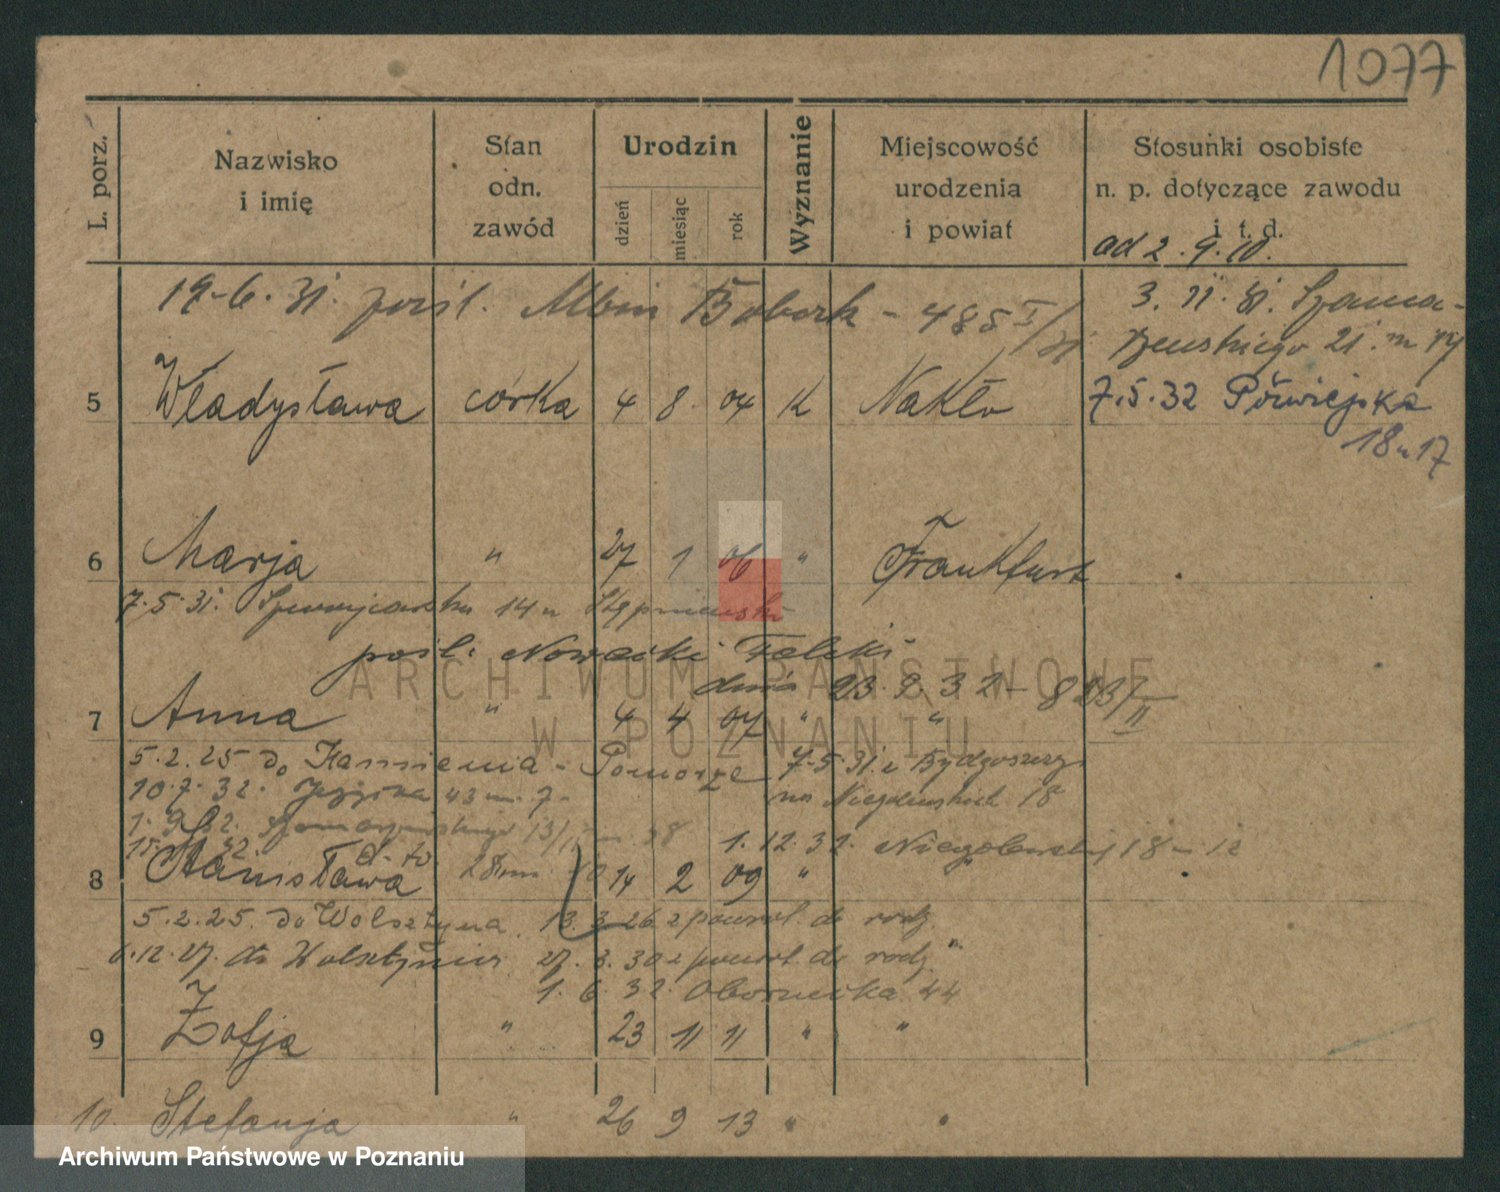 1077
L. porz.
Nazwisko
i imię
Stan
odn.
zawód
Urodzin
dzień
miesiąc
rok
Wyznanie
Miejscowość
urodzenia
i powiat
Stosunki osobiste
n. p. dotyczące zawodu
i t. d.
ad 2. 9. 10.
19.6.31. pośl. Albin - 485 I/31
3. 11. 31. Szama-
rzewskiego 21. m
5 Władysława córka 4 8 04 K Nakło 7.5.32 Półwiejska
18 m 17
6 Marja " 27 1 06 " Frankfurt
7.5.31. 14 u
pośl. Nowacki Feliks
dnia 23. 9. 32 - /II
7 Anna " 4 4 07 " "
5.2.25 do Kamienia - Pomorze 7.5.31. z Bydgoszczy
10.7.32. 43 m. 7. na Niegolewskich 18
1.9.32. Szamarzewskiego 13/ 1.12.32. Niegolewskich 18 - 12
8 Stanisława 14 2 09 " "
5.2.25. do Wolsztyna 13. 3. 26 z powrot. do rodz.
6.12.27. do Wolsztyna 27. 3. 30 z powrot. do rodz.
1. 6. 32. Obornicka 44
9 Zofja " 23 11 11 " "
10. Stefanja " 26 9 13 " "
ARCHIWUM PAŃSTWOWE
W POZNANIU
Archiwum Państwowe w Poznaniu